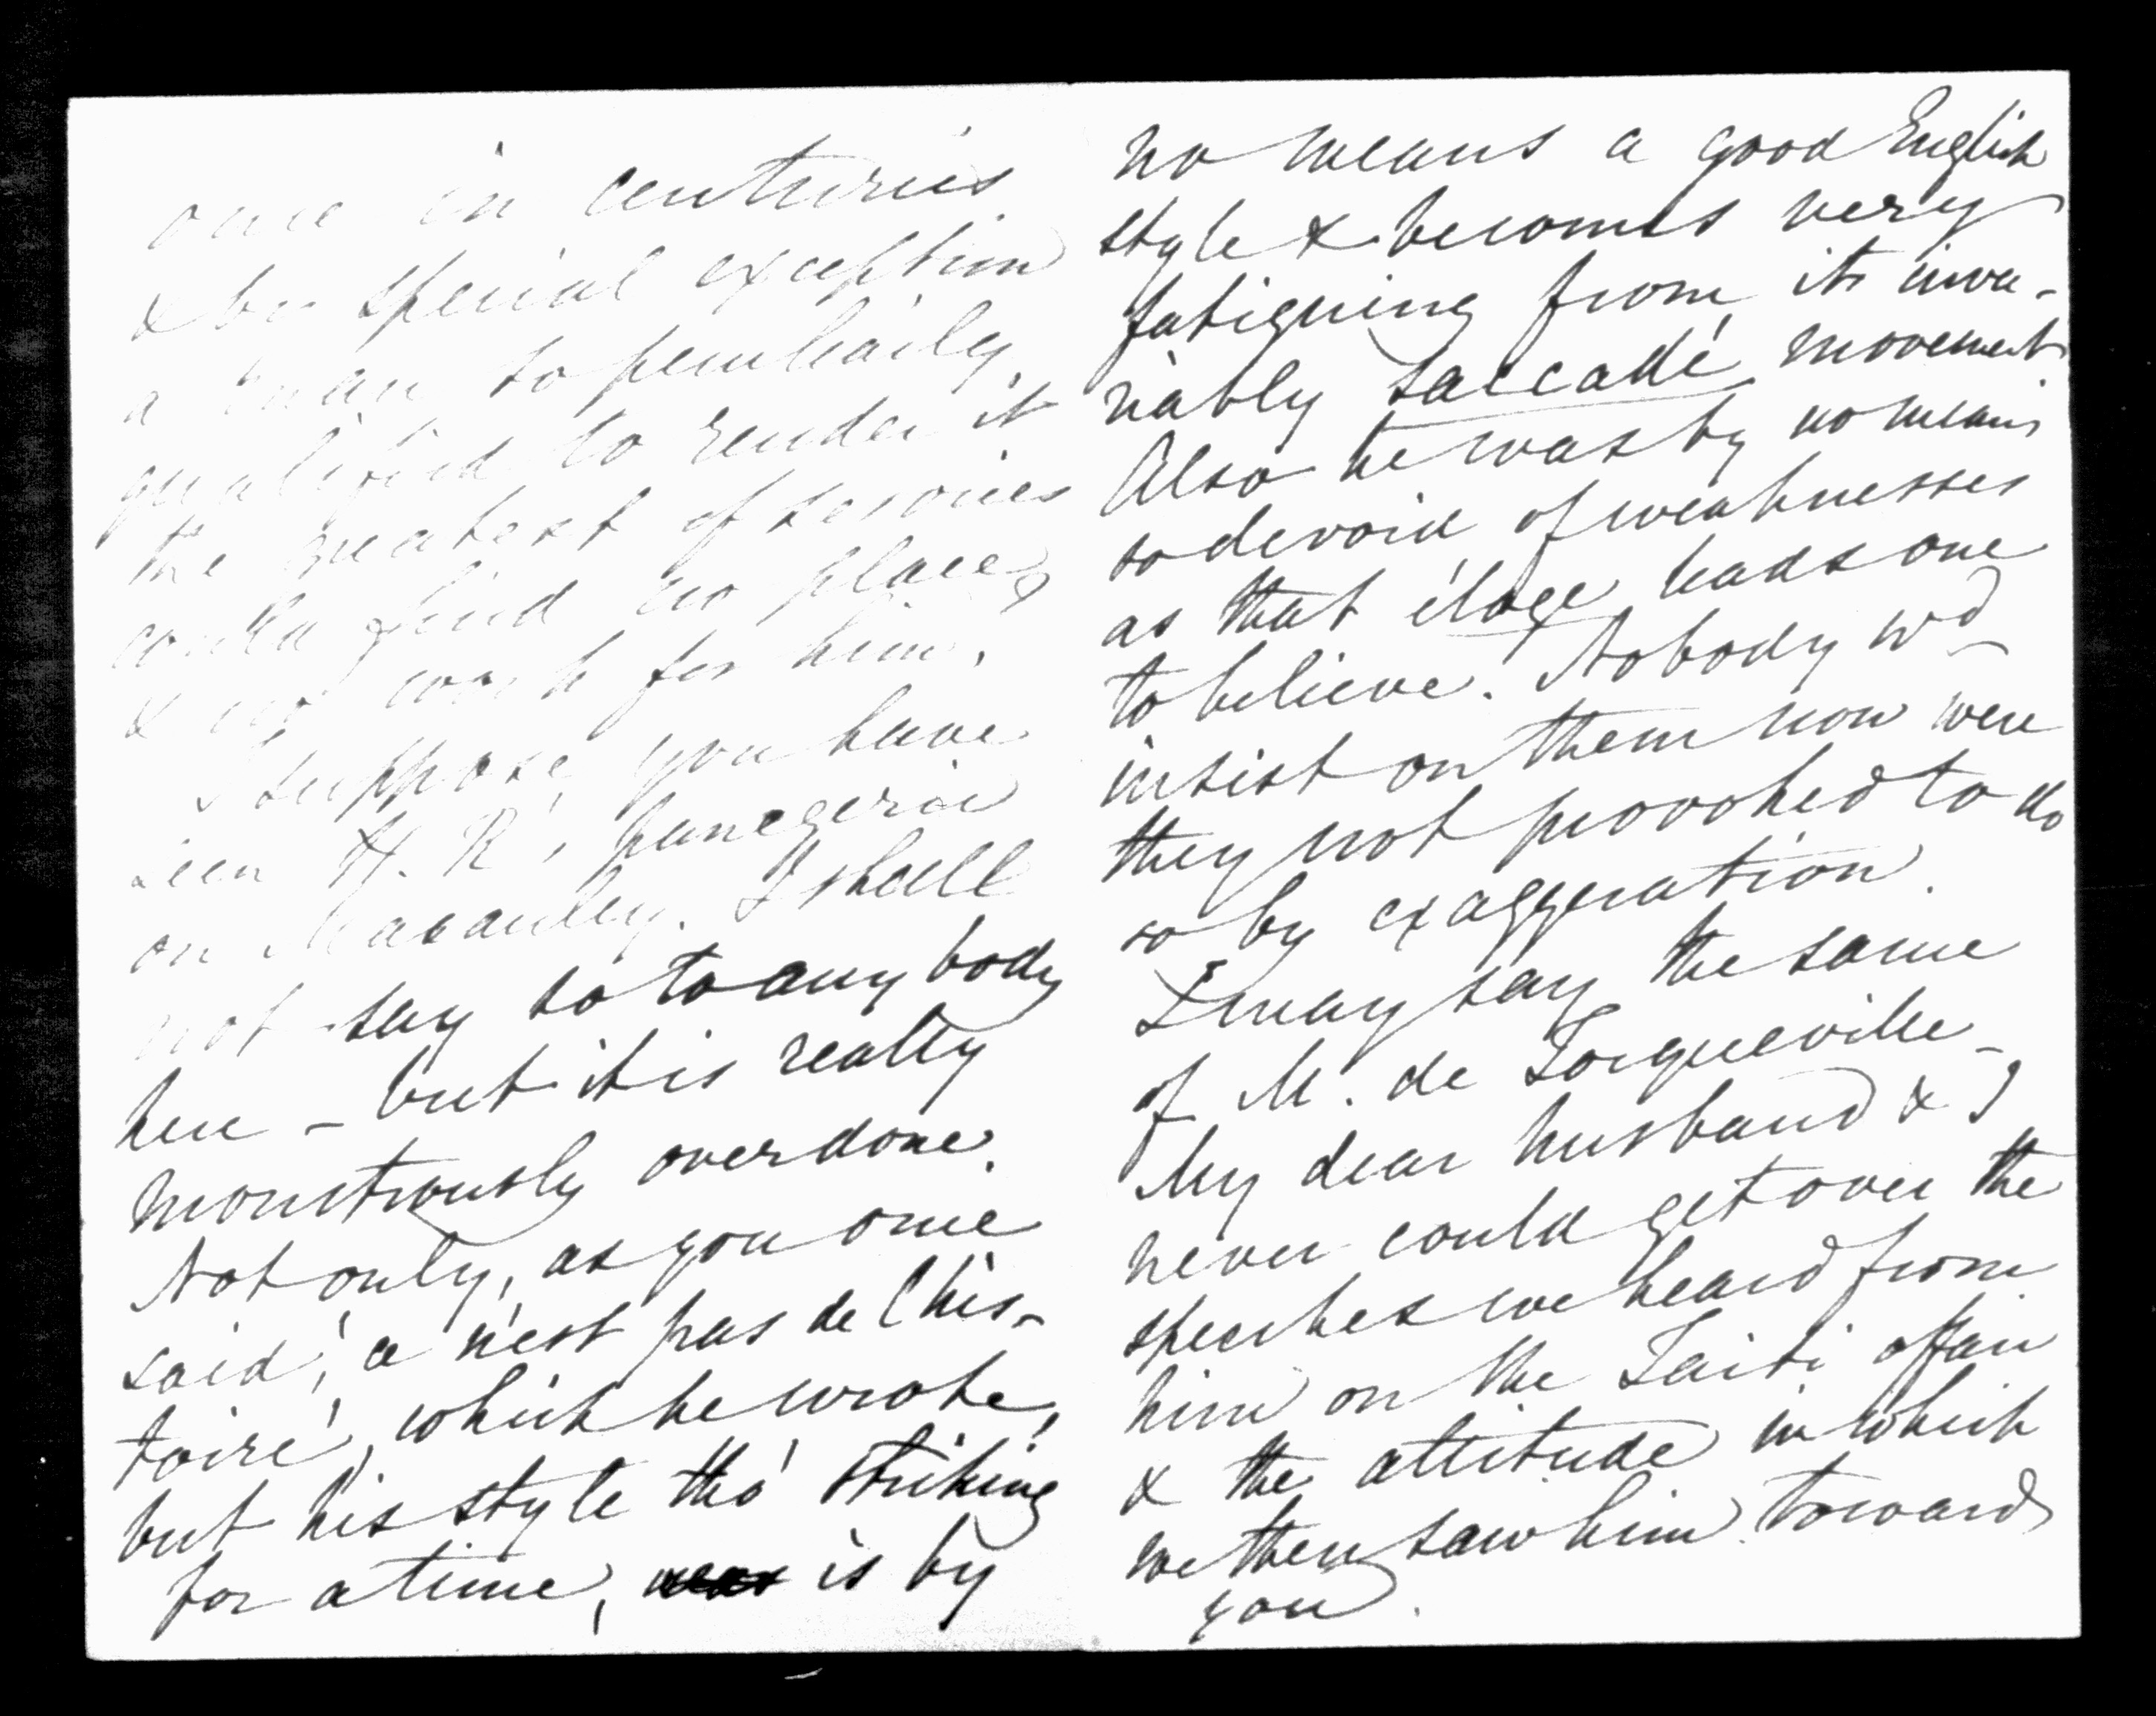 once in centuries
& by special exception
a man so peculiarly
qualified to render it
the greatest of services
could find no place
& no work for him.
I suppose you have
seen H. R's panegeric
on Macauley. I shall
not say so to any body
here – but it is really
monstrously overdone.
Not only, as you once
said, 'ce n'est pas de l'his-
toire', which he wrote,
but his style tho' striking
for a time, is by
no means a good English
style & becomes very
fatiguing from its inva-
riably saccadé movement.
Also he was by no means
so devoid of weaknesses
as that éloge leads one
to believe. Nobody wd
insist on them now were
they not provoked to do
so by exaggeration.
I may say the same
of M. de Tocqueville –
My dear husband & I
never could get over the
speeches we heard from
him on the Taiti affair
& the attitude in which
we then saw him toward
you.